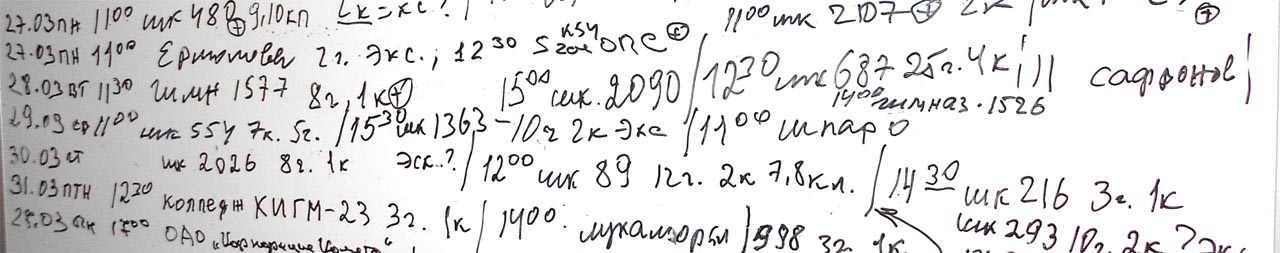 27.03 пн 11⁰⁰ шк 480 ⊕ 9,10 кл 2к = кс? 11⁰⁰ шк 2107 ⊕ 2к
27.03 пн 11⁰⁰ Ермолова 2г. Экс., 12³⁰ ⊕
28.03 вт 11³⁰ гимн 1577 8г, 1к ⊕ 15⁰⁰ шк. 2090 / 12³⁰ шк 687 25г. 4к сафронов
14⁰⁰ гимназ. 1526
29.03 ср 11⁰⁰ шк 554 7к. 5г. / 15³⁰ шк 1363 – 10г 2к Экс / 11⁰⁰ шпаро
30.03 чт шк 2026 8г. 1к Эск..? / 12⁰⁰ шк 89 12г. 2к 7,8 кл. / 14³⁰ шк 216 3г. 1к
31.03 птн 12³⁰ колледж КИГМ-23 3г. 1к / 14⁰⁰ лукоморья / 998 3г. 1к шк 293 10г. 2к?
ОАО